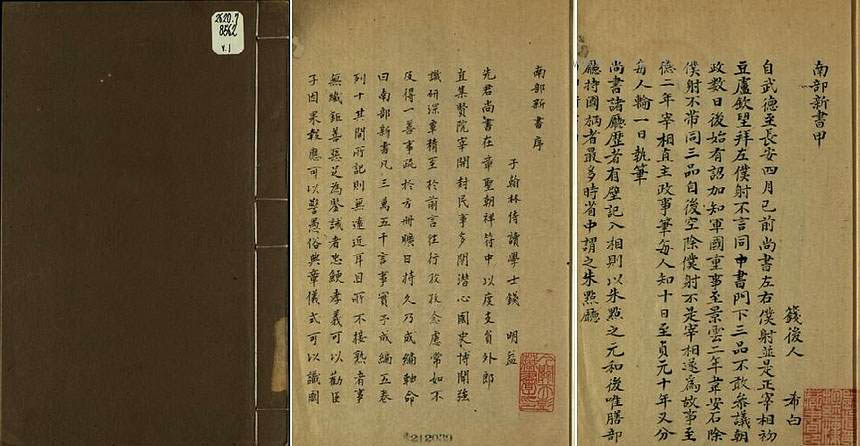 2620.7
8562
v.1
南部新書序
子翰林侍讀學士錢 明逸
先君尚書在章聖朝祥符中以度支員外郎
直集賢院宰開封民事多閒潛心國史博聞強
識研深覃精至於前言往行孜孜念慮常如不
及得一善事疏於方冊曠日持久乃成編軸命
曰南部新書凡三萬五千言事實千成編五卷
列十其間所記則無遠近耳目所不接熟者事
無纖鉅善惡足為鑒誡者忠鯁孝義可以勸臣
子因果報應可以警愚俗典章儀式可以識國
212039
南部新書甲
錢後人 希白
自武德至長安四月已前尚書左右僕射並是正宰相初
豆盧欽望拜左僕射不言同中書門下三品不敢參議朝
政數日後始有詔加知軍國重事至景雲二年韋安石除
僕射不帶同三品自後空除僕射不是宰相遂為故事至
德二年宰相直主政事筆每人知十日至貞元十年又分
每人輪一日執筆
尚書諸廳歷者有壁記入相則以朱點之元和後唯膳部
廳持國柄者最多時省中謂之朱點廳